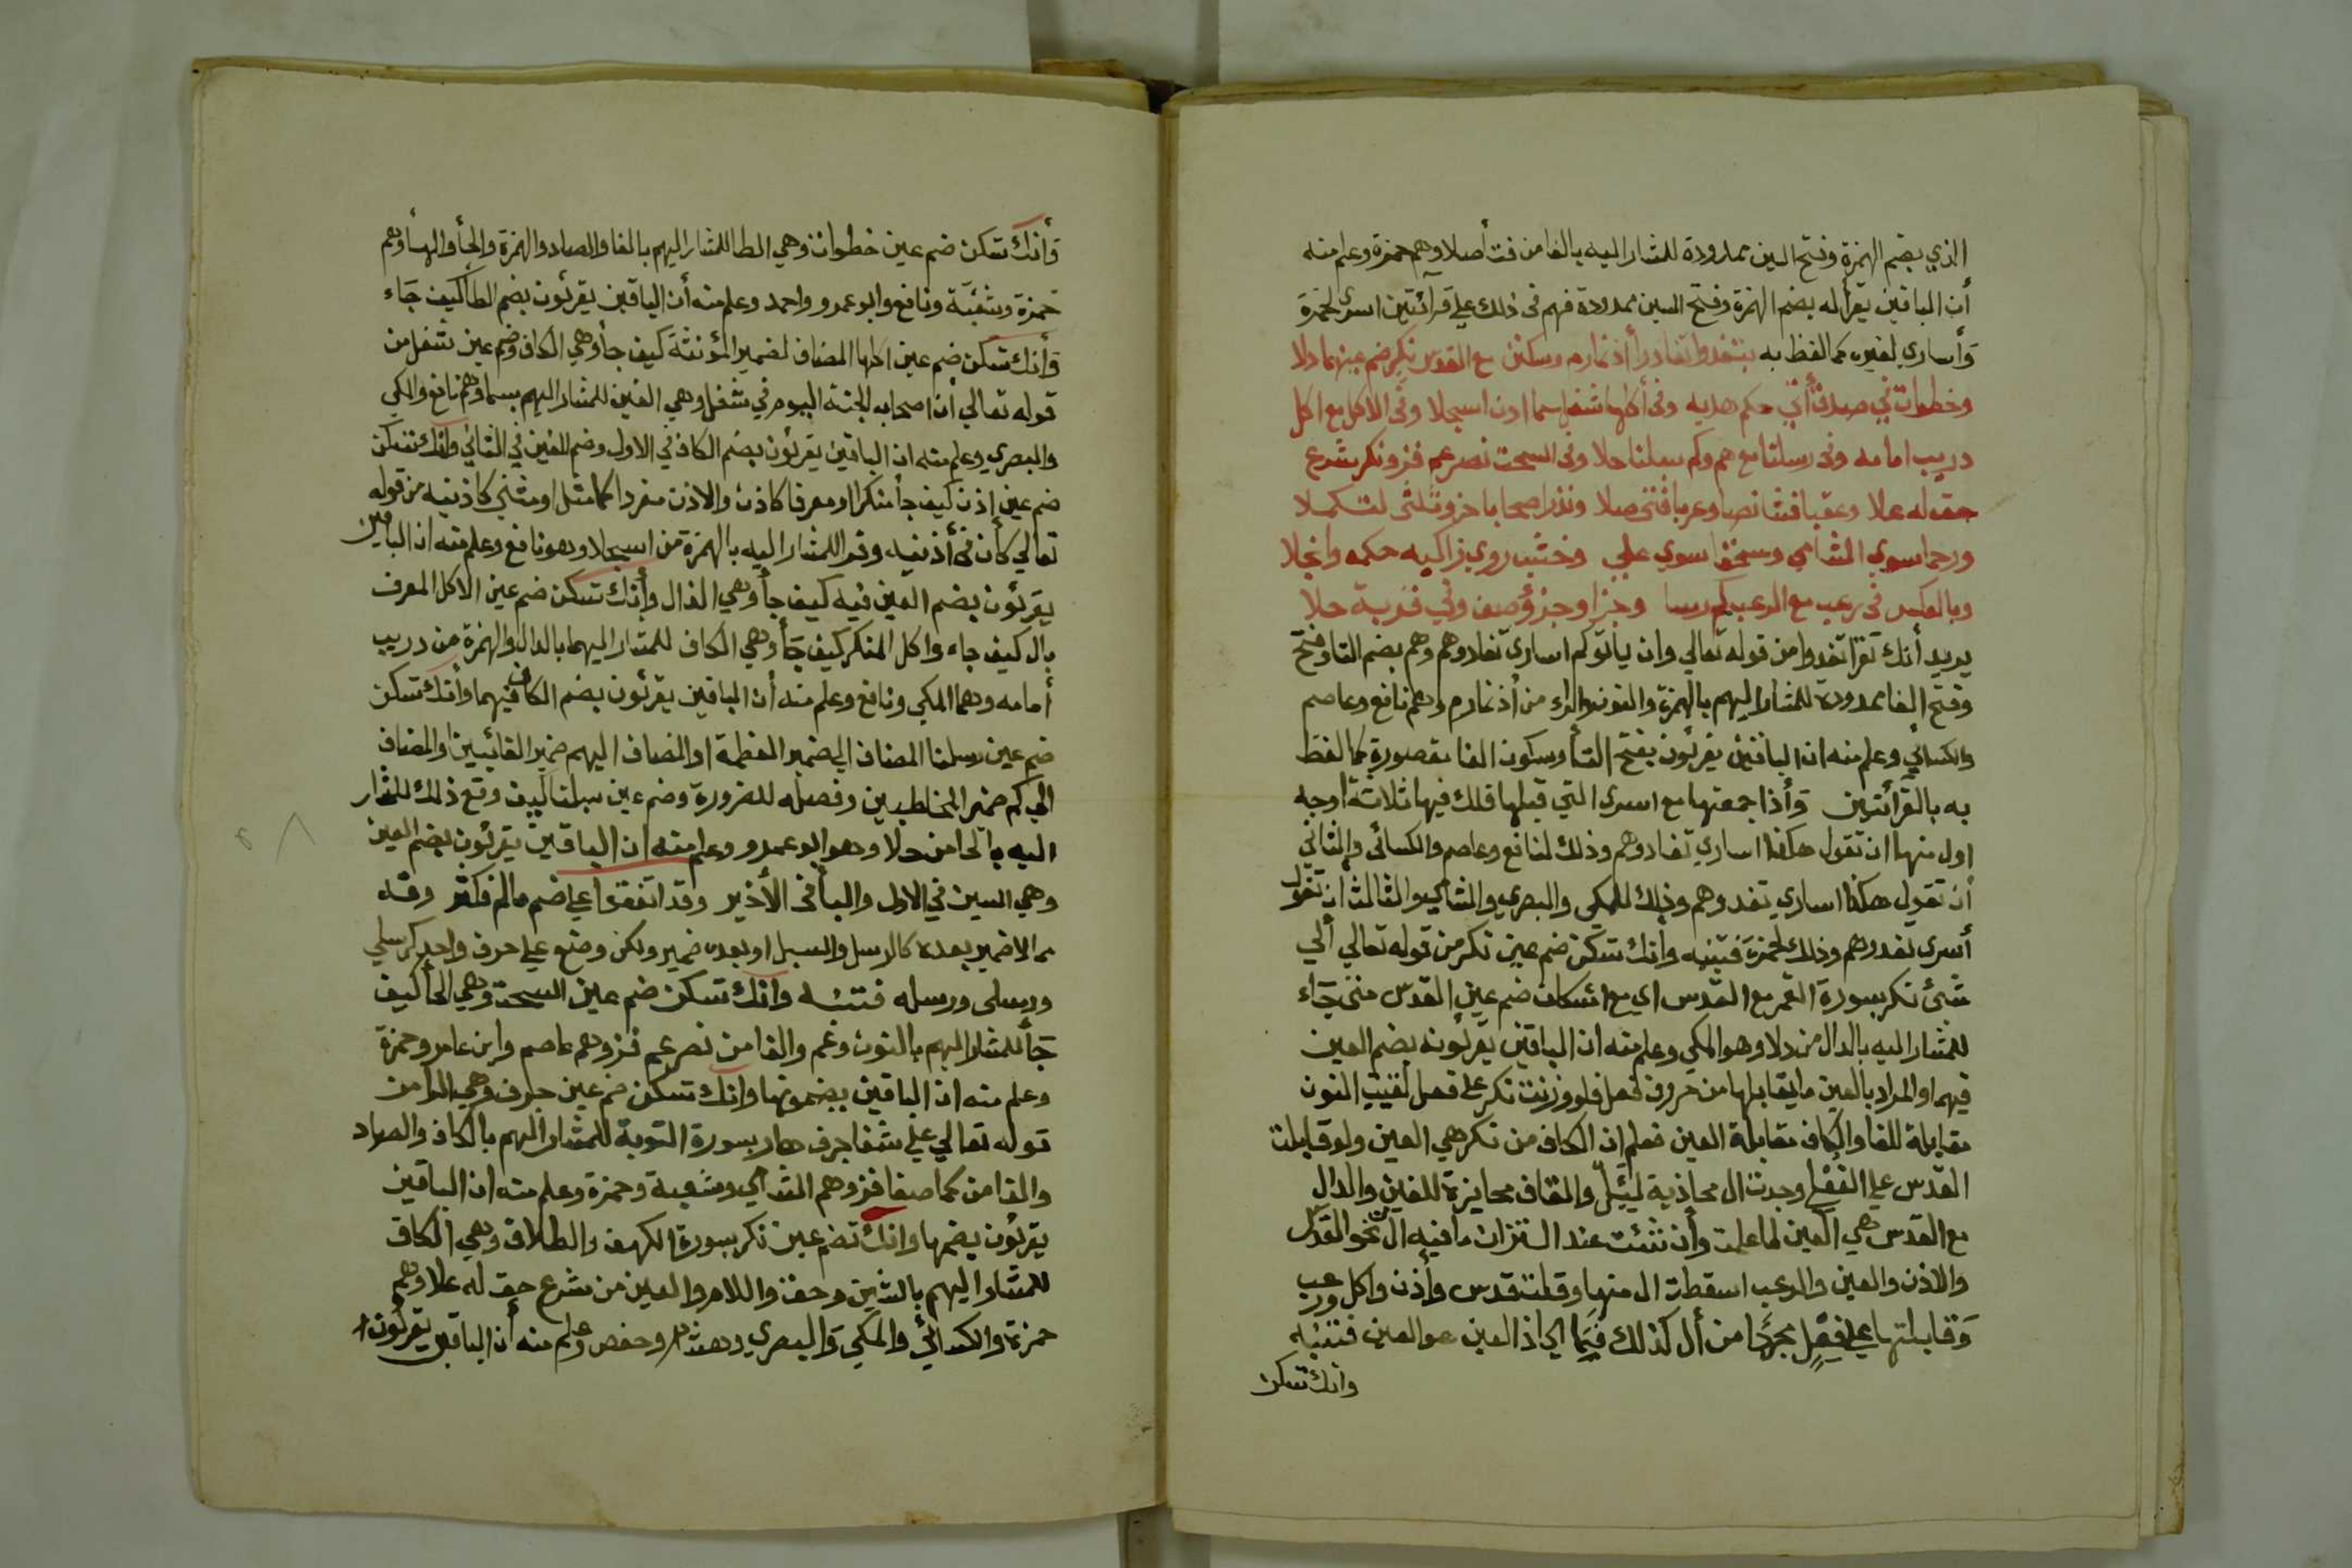 الذي بضم الهمزة وفتح السين ممدودة للمشار اليه بالفا من فت أصلا وهم حمزة وعلم منه
أن الباقين يقرأ له بضم الهمزة وفتح السين ممدودة فهم في ذلك علي قرآئتين اسرى لحمزة
وأساري لغيره كما لفظ به بتفدوا تفادوا أذ نمارم وسكنن مع القدس نكر ضم عينهما دلا
وخطوات في صدق أتي حكم هديه وفي أكلها شغل سما اذن اسجلا وفي الاكل مع اكل
دريب امامه وفي رسلنا مع هم وكم سبلنا حلا وفي السحت نصر عم فز ونكر شرع
حق له علا وعقبا فشا نصا وعربا فتى صلا ونذرا صحابا حز وثلثى لتكملا
ورحما سوي الشامي وسحقا سوي علي وخشب روي زاكيه حكمه وانجلا
وبالعكس في رعب مع الرعب كم رسا وجزا وجزؤ صف وفي قربة حلا
يريد أنك تقرا تفدوا من قوله تعالي وان ياتوكم اساري تفادوهم وهم بضم التا وفتح
وفتح الفا ممدودة للمشار اليهم بالهمزة والنون والراء من أذ نمارم وهم نافع وعاصم
والكسائي وعلم منه ان الباقين يقرئون بفتح التأ وسكون الفا مقصورة كما لفظ
به بالقرائتين وأذا جمعتها مع اسرى التي قبلها قلك فيها ثلاثة اوجه
اول منها ان تقول هكذا اساري تفادوهم وذلك لنافع وعاصم والكسائي والثاني
أن تقول هكذا اساري تفدوهم وذلك للمكي والبصري والشامي والثالث ان تقول
أسرى تفدوهم وذلك لحمزة فتنبه وانك تسكن ضم عين نكر من قوله تعالي ألي
شئ نكر بسورة القمر مع القدس اي مع اسكان ضم عين القدس متى جاء
للمشار اليه بالدال من دلا وهو المكي وعلم منه ان الباقين يقرئونه بضم العين
فيهما والمراد بالعين ما يقابلها من حروف فعل فلو وزنت نكر على فعل لقيت النون
مقابلة للفا والكاف مقابلة العين فعلم ان الكاف من نكر هي العين ولو قابلت
القدس علي الفعل وجدت ال محاذية لئيل والقاف محايزة للفين والدال
مع القدس هي العين لما علمت وأن شئت عند التنزان ما فيه ال نحو القدس
والاذن والعين والرعب اسقطت ال منها وقلت قدس وأذن واكل ورعب
وقابلتها علي فعل مجردا من أل كذلك فيما الحاذ العين هو العين فتنبه
وانك تسكن
وأنك تسكن ضم عين خطوات وهي الطا للمشار اليهم بالفا والصاد والهمزة والحأ والهأ وهم
حمزة وشعبة ونافع وابو عمرو واحمد وعلم منه أن الباقين يقرئون بضم الطا كيف جاء
وأنك تسكن ضم عين اكلها المضاف لضمير المؤنثة كيف جأ وهي الكاف وضم عين شغل من
قوله تعالي ان اصحاب الجنة اليوم في شغل وهي الغين للمشار اليهم بسما وهم نافع والمكي
والبصري وعلم منه ان الباقين يقرئون بضم الكاف في الاول وضم الغين في الثاني وانك تسكن
ضم عين اذن كيف جأ منكرا او معرفا كاذن والاذن مفردا كما مثل او مثنى كاذنيه من قوله
تعالي كأن في أذنيه وقرا للمشار اليه بالهمزة من اسجلا وهو نافع وعلم منه ان الباقين
يقرئون بضم العين فيه كيف جأ وهي الذال وأنك تسكن ضم عين الاكل المعرف
بال كيف جاء واكل المنكر كيف جأ وهي الكاف للمشار اليهما بالدال والهمزة من دريب
أمامه وهما المكي ونافع وعلم منه أن الباقين يقرئون بضم الكاف فيهما وأنك تسكن
ضم عين رسلنا المضاف الي ضمير العظمة او المضاف اليهم ضمير الغائبين او المضاف
الي كم ضمير المخاطبين وفصله للضرورة وضم عين سبلنا كيف وقع ذلك للمشار
اليه بالحا من حلا وهو ابو عمرو وعلم منه ان الباقين يقرئون بضم العين
وهي السين في الاول والبأ في الأخير وقد اتفقوا علي ضم مالم
الاضمير بعده كالرسل والسبل او بعده ضمير ولكن وضع علي حرف واحد كرسلي
ورسلى ورسله فتنبه وانك تسكن ضم عين السحت وهي الحأ كيف
جأ للمشار اليهم بالنون وعم والفا من نصر عم فز وهم عاصم وابن عامر وحمزة
وعلم منه ان الباقين يضمونها وانك تسكن ضم عين جرف وهي الرا من
قوله تعالي علي شفا جرف هار بسورة التوبة للمشار اليهم بالكاف والصاد
والفا من كما صفا فز وهم الشامي وشعبة وحمزة وعلم منه ان الباقين
يقرئون بضمها وانك تضم عين نكر بسورة الكهف والطلاق وهي الكاف
للمشار اليهم بالشين وحق واللام والعين من شرع حق له علا وهم
حمزة والكسائي والمكي والبصري وهشام وحفص وعلم منه أن الباقين يقرئون